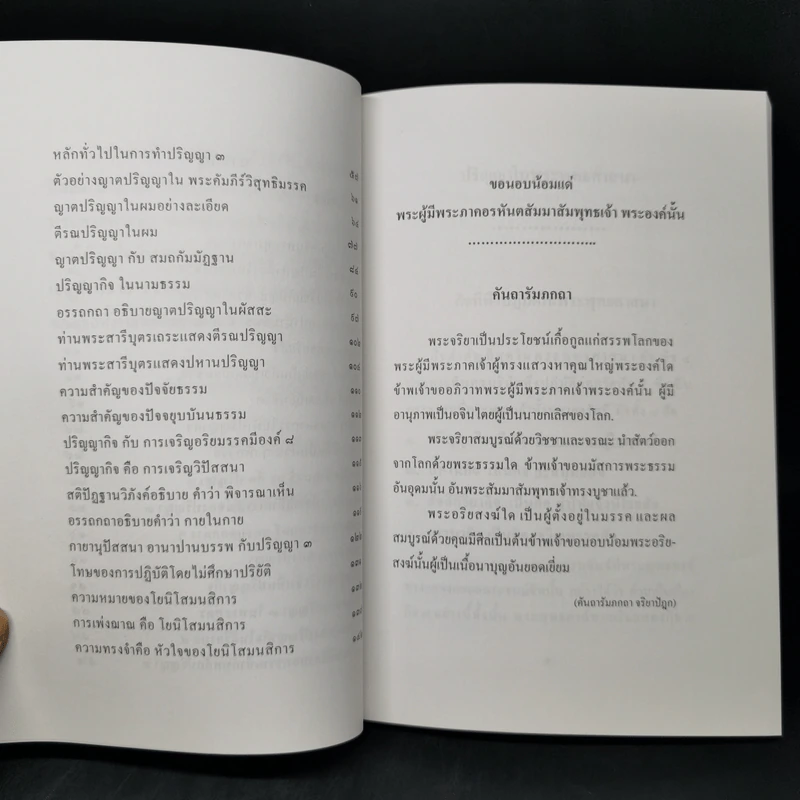 หลักทั่วไปในการทำปริญญา ๓
ตัวอย่างญาตปริญญาใน พระคัมภีร์วิสุทธิมรรค
ญาตปริญญาในผมอย่างละเอียด
ตีรณปริญญาในผม
ญาตปริญญา กับ สมถกัมมัฏฐาน
ปริญญากิจ ในนามธรรม
อรรถกถา อธิบายญาตปริญญาในผัสสะ
ท่านพระสารีบุตรเถระแสดงตีรณปริญญา
ท่านพระสารีบุตรแสดงปหานปริญญา
ความสำคัญของปัจจัยธรรม ๑๑๐
ความสำคัญของปัจจยุบบันนธรรม
ปริญญากิจ กับ การเจริญอริยมรรคมีองค์ ๘
ปริญญากิจ คือ การเจริญวิปัสสนา
สติปัฏฐานวิภังค์อธิบาย คำว่า พิจารณาเห็น
อรรถกถาอธิบายคำว่า กายในกาย
กายานุปัสสนา อานาปานบรรพ กับปริญญา ๓
โทษของการปฏิบัติโดยไม่ศึกษาปริยัติ
ความหมายของโยนิโสมนสิการ
การเพ่งฌาณ คือ โยนิโสมนสิการ
ความทรงจำคือ หัวใจของโยนิโสมนสิการ
ขอนอบน้อมแด่
พระผู้มีพระภาคอรหันตสัมมาสัมพุทธเจ้า พระองค์นั้น
คันถารัมภกถา
พระจริยาเป็นประโยชน์เกื้อกูลแก่สรรพโลกของ
พระผู้มีพระภาคเจ้าผู้ทรงแสวงหาคุณใหญ่พระองค์ใด
ข้าพเจ้าขออภิวาทพระผู้มีพระภาคเจ้าพระองค์นั้น ผู้มี
อานุภาพเป็นอจินไตยผู้เป็นนายกเลิศของโลก.
พระจริยาสมบูรณ์ด้วยวิชชาและจรณะ นำสัตว์ออก
จากโลกด้วยพระธรรมใด ข้าพเจ้าขอนมัสการพระธรรม
อันอุดมนั้น อันพระสัมมาสัมพุทธเจ้าทรงบูชาแล้ว.
พระอริยสงฆ์ใด เป็นผู้ตั้งอยู่ในมรรค และผล
สมบูรณ์ด้วยคุณมีศีลเป็นต้นข้าพเจ้าขอนอบน้อมพระอริย-
สงฆ์นั้นผู้เป็นเนื้อนาบุญอันยอดเยี่ยม
(คันถารัมภกถา จริยาปิฎก)